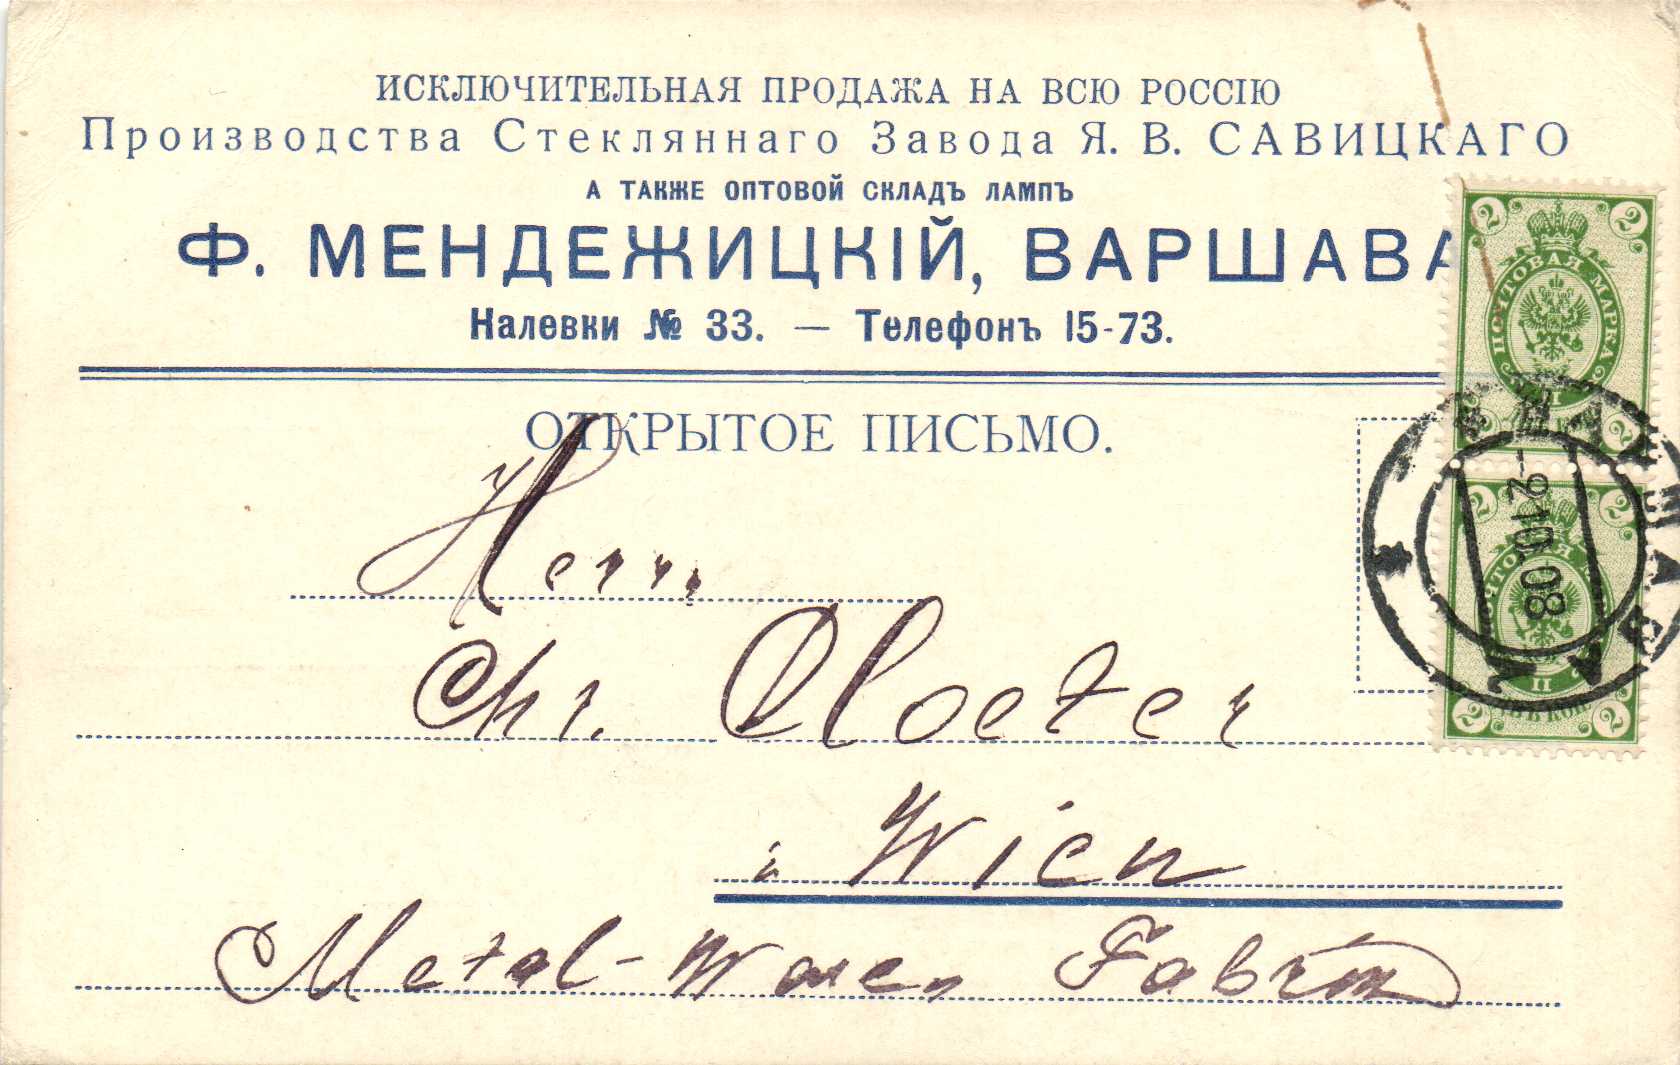 ИСКЛЮЧИТЕЛЬНАЯ ПРОДАЖА НА ВСЮ РОССІЮ
Производства Стекляннаго Завода Я. В. САВИЦКАГО
А ТАКЖЕ ОПТОВОЙ СКЛАДЪ ЛАМПЪ
Ф. МЕНДЕЖИЦКІЙ, ВАРШАВА
Налевки № 33. — Телефонъ 15-73.
ОТКРЫТОЕ ПИСЬМО.
Herrn
Chr.
in Wien
Metal-Waren Fabrik
2 2
ПОЧТОВАЯ МАРКА
2 2
ВАРШАВА
-2 10.08
2 2
II
2 ДВѢ КОП. 2